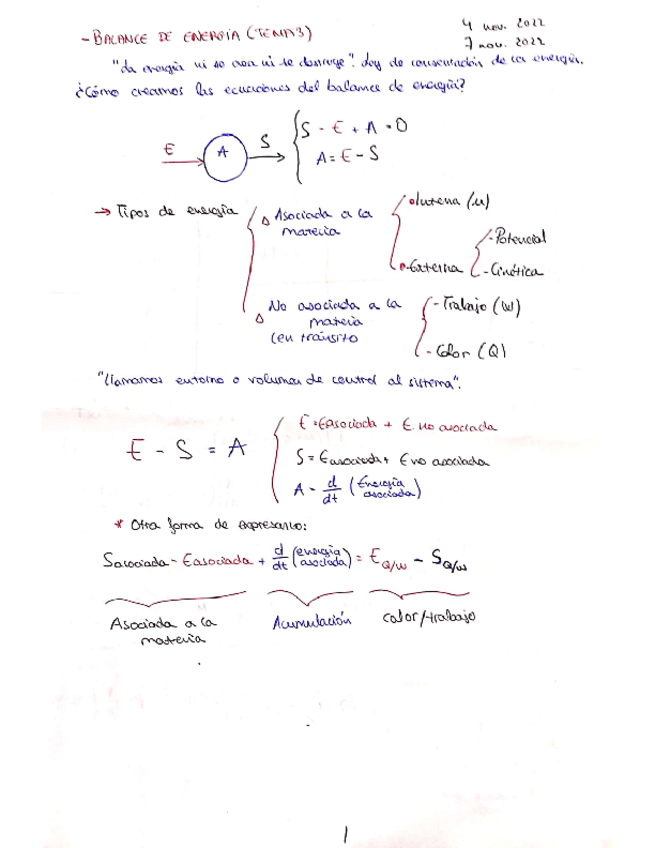 4 nov. 2022
- BALANCE DE ENERGÍA (TEMA 3)
7 nov. 2022
"La energía ni se crea ni se destruye". Ley de conservación de la energía.
¿Cómo creamos las ecuaciones del balance de energía?
E A S
S - E + A = 0
A = E - S
→ Tipos de energía
Asociada a la materia
- Interna (u)
- Externa
- Potencial
- Cinética
No asociada a la materia
(en tránsito
- Trabajo (W)
- Calor (Q)
"Llamamos entorno o volumen de control al sistema".
E - S = A
E = Easociada + E. no asociada
S = Easociada + E no asociada
A = d/dt (Energía asociada)
* Otra forma de expresarlo:
Sasociada - Easociada + d/dt (energía asociada) = E Q/W - S Q/W
Asociada a la materia
Acumulación
calor/trabajo
1